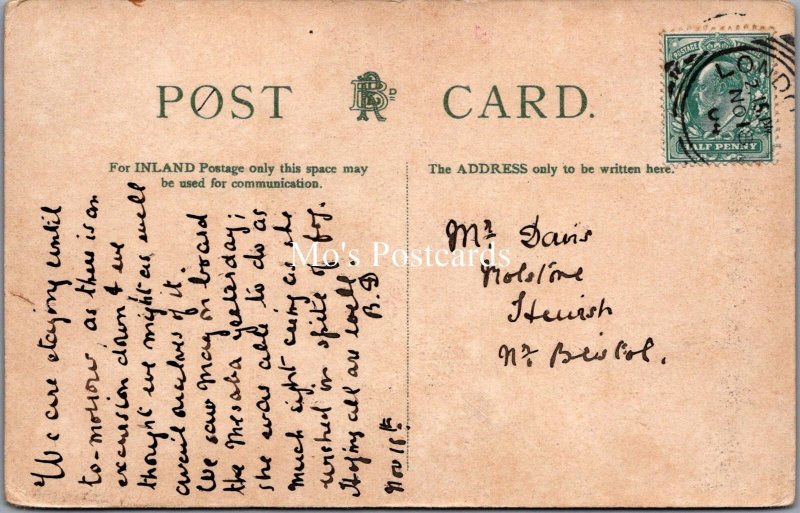 POST CARD.
For INLAND Postage only this space may
be used for communication.
The ADDRESS only to be written here.
POSTAGE
HALF PENNY
LONDO
NO
We are staying until
to-morrow as there is an
excursion down & we
thought we might as well
avail ourselves of it.
We saw May on board
the Mesaba yesterday;
she was able to do as
much sight seeing as she
wished in spite of fog.
Hoping all are well.
B.D
Nov 16th
Mr Davis
Hewish
Nr Bristol.
Mo's Postcards